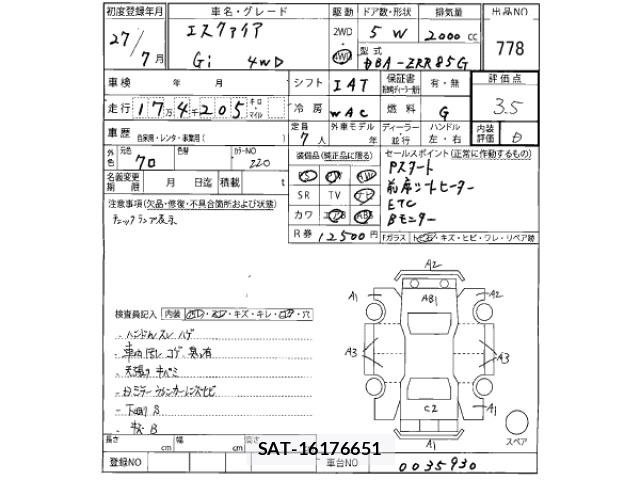 初度登録年月 車名・グレード 駆動 ドア数・形状 排気量 出品NO
27/7月 エスクァイア 2WD 5 W 2000cc 778
Gi 4WD 4WD 型式 DBA-ZRR85G
車検 年 月 シフト IAT 保証書 有・無 評価点
走行 17万4千205 キロ マイル 冷房 WAC 燃料 G 3.5
車歴 自家用・レンタ・事業用( ) 定員 7人 外車モデル 年 ディーラー 並行 ハンドル 左・右 内装評価
外色 元色 クロ 色替 カラーNO 220 装備品(純正品に限る) セールスポイント(正常に作動するもの)
PS PW AW Pスタート
名義変更期限 月 日迄 積載 t SR TV ナビ 前席シートヒーター
注意事項(欠品・修復・不具合個所および状態) カワ エアB ABS ETC
Bモニター
R券 12500円 Fガラス トビ石・キズ・ヒビ・ワレ・リペア跡
A2
A1 AB1 A2
検査員記入 内装 ヨゴレ・スレ・キズ・キレ・コゲ・穴
・ハンドルスレ ハゲ
A3 A3
・天張り キバミ
C2 A1
・下廻り S
長さ cm 幅 cm 高さ A1 スペア
SAT-16176651
登録NO 車台NO 0035930